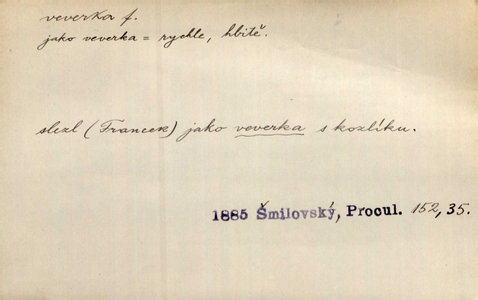 veverka f.
jako veverka = rychle, hbitě.
slezl (Francek) jako veverka s kozlíku.
1885 Šmilovský, Procul. 152, 35.